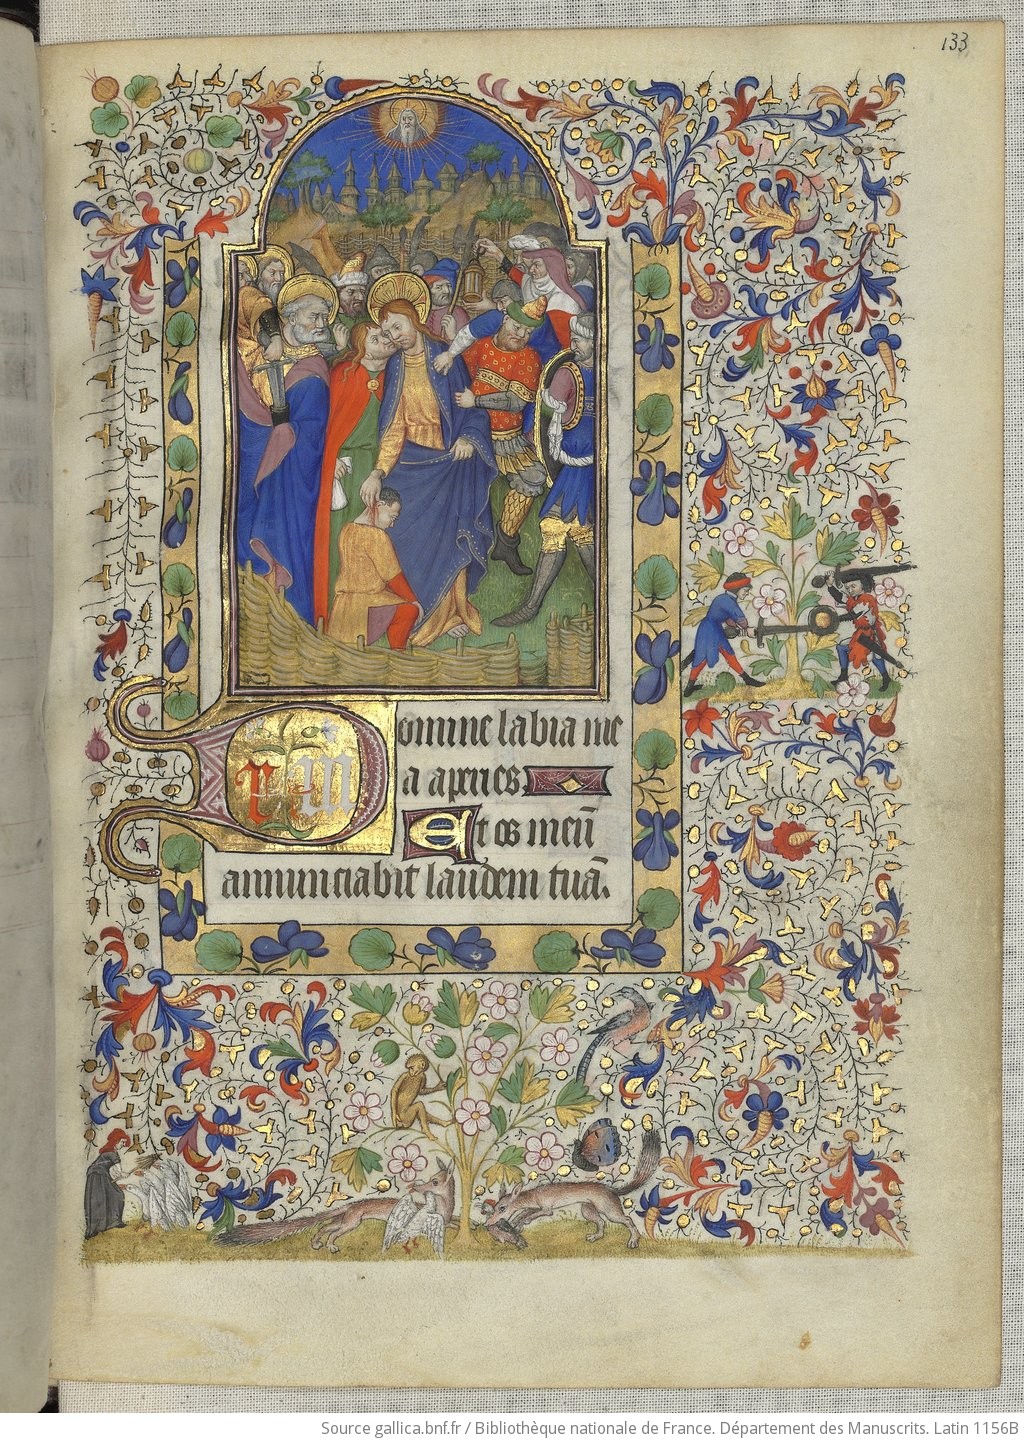 133
Domine labia me
a apries.
Et os meũ
annunciabit laudem tuã.
Source gallica.bnf.fr / Bibliothèque nationale de France. Département des Manuscrits. Latin 1156B